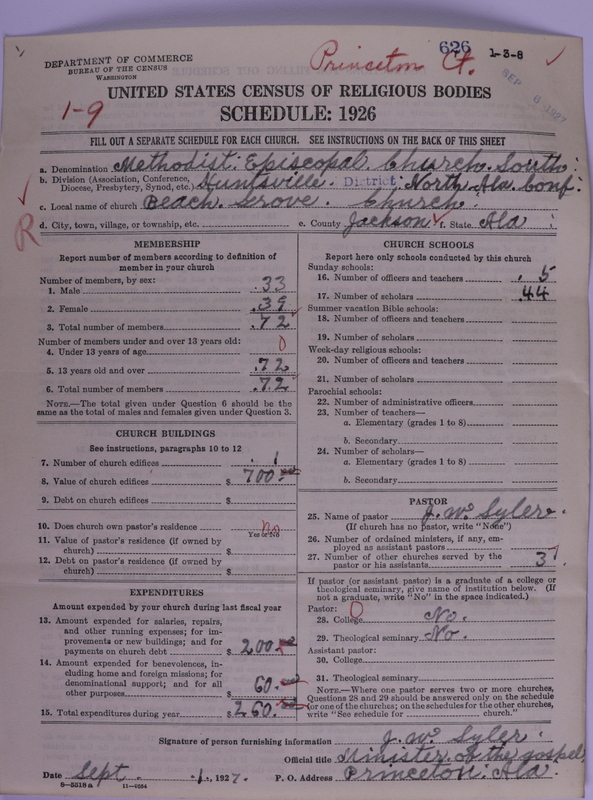 DEPARTMENT OF COMMERCE
BUREAU OF THE CENSUS
WASHINGTON
Princeton Ct.
626
1-3-8
SEP 6 1927
1-9
UNITED STATES CENSUS OF RELIGIOUS BODIES
SCHEDULE: 1926
FILL OUT A SEPARATE SCHEDULE FOR EACH CHURCH. SEE INSTRUCTIONS ON THE BACK OF THIS SHEET
a. Denomination Methodist Episcopal Church South
b. Division (Association, Conference, Diocese, Presbytery, Synod, etc.) Huntsville District, North Ala Conf
c. Local name of church Beach Grove Church
R
d. City, town, village, or township, etc.
e. County Jackson f. State Ala
MEMBERSHIP
Report number of members according to definition of
member in your church
Number of members, by sex:
1. Male 33
2. Female 39
3. Total number of members 72
Number of members under and over 13 years old:
4. Under 13 years of age 0
5. 13 years old and over 72
6. Total number of members 72
NOTE.—The total given under Question 6 should be
same as the total of males and females given under Question 3.
CHURCH BUILDINGS
See instructions, paragraphs 10 to 12
7. Number of church edifices 1
8. Value of church edifices $ 700.
9. Debt on church edifices $
10. Does church own pastor's residence no
Yes or No
11. Value of pastor's residence (if owned by
church) $
12. Debt on pastor's residence (if owned by
church) $
EXPENDITURES
Amount expended by your church during last fiscal year
13. Amount expended for salaries, repairs,
and other running expenses; for im-
provements or new buildings; and for
payments on church debt $ 200.
14. Amount expended for benevolences, in-
cluding home and foreign missions; for
denominational support; and for all
other purposes $ 60.
15. Total expenditures during year $ 260.
CHURCH SCHOOLS
Report here only schools conducted by this church
Sunday schools:
16. Number of officers and teachers 5
17. Number of scholars 44
Summer vacation Bible schools:
18. Number of officers and teachers
19. Number of scholars
Week-day religious schools:
20. Number of officers and teachers
21. Number of scholars
Parochial schools:
22. Number of administrative officers
23. Number of teachers—
a. Elementary (grades 1 to 8)
b. Secondary
24. Number of scholars—
a. Elementary (grades 1 to 8)
b. Secondary
PASTOR
25. Name of pastor J. W. Syler.
(If church has no pastor, write "None")
26. Number of ordained ministers, if any, em-
ployed as assistant pastors
27. Number of other churches served by the
pastor or his assistants 3
If pastor (or assistant pastor) is a graduate of a college or
theological seminary, give name of institution below. (If
not a graduate, write "No" in the space indicated.)
Pastor: 0
28. College No.
29. Theological seminary No.
Assistant pastor:
30. College
31. Theological seminary
NOTE.—Where one pastor serves two or more churches,
Questions 28 and 29 should be answered only on the schedule
for one of the churches; on the schedules for the other churches,
write "See schedule for church."
Signature of person furnishing information J. W. Syler
Official title Minister of the gospel
Date Sept 1, 1927. P. O. Address Princeton. Ala.
8-5518a 11-4034